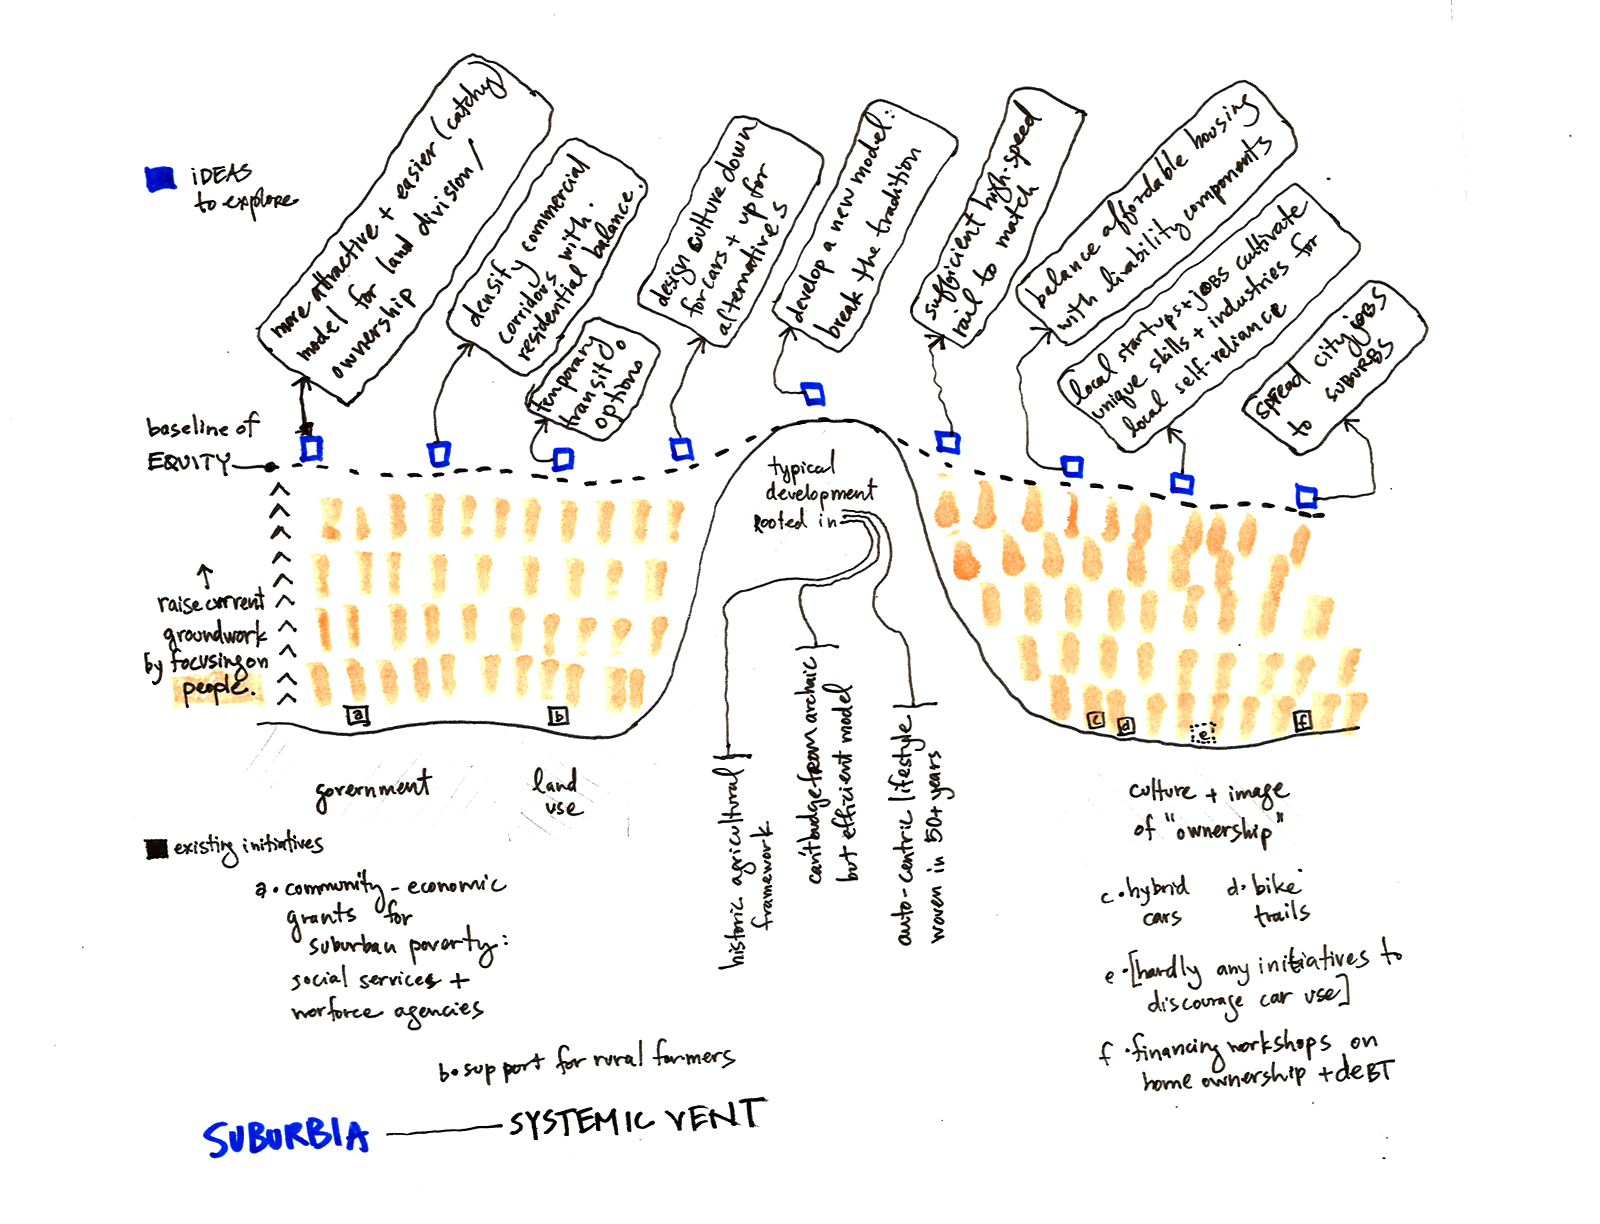 iDEAS
to explore
more attractive + easier (catchy
model for land division/
ownership
densify commercial
corridors with.
residential balance.
temporary
transit
options
design culture down
for cars + up for
alternatives
develop a new model:
break the tradition
sufficient high-speed
rail to match
balance affordable housing
with livability components
local startups + jOBS cultivate
unique skills + industries for
local self-reliance
spread city jOBS
to SUBURBS
baseline of
EQUITY
raise current
groundwork
by focusing on
people.
typical
development
rooted in
historic agricultural
framework
can't budge from archaic
but efficient model
auto-centric lifestyle
woven in 50+ years
a
b
c
d
e
f
government
land
use
culture + image
of "ownership"
existing initiatives
a. community-economic
grants for
suburban poverty:
social services +
worforce agencies
b. support for rural farmers
c. hybrid
cars
d. bike
trails
e. [hardly any initiatives to
discourage car use]
f. financing workshops on
home ownership + deBT
SUBURBIA
SYSTEMIC VENT